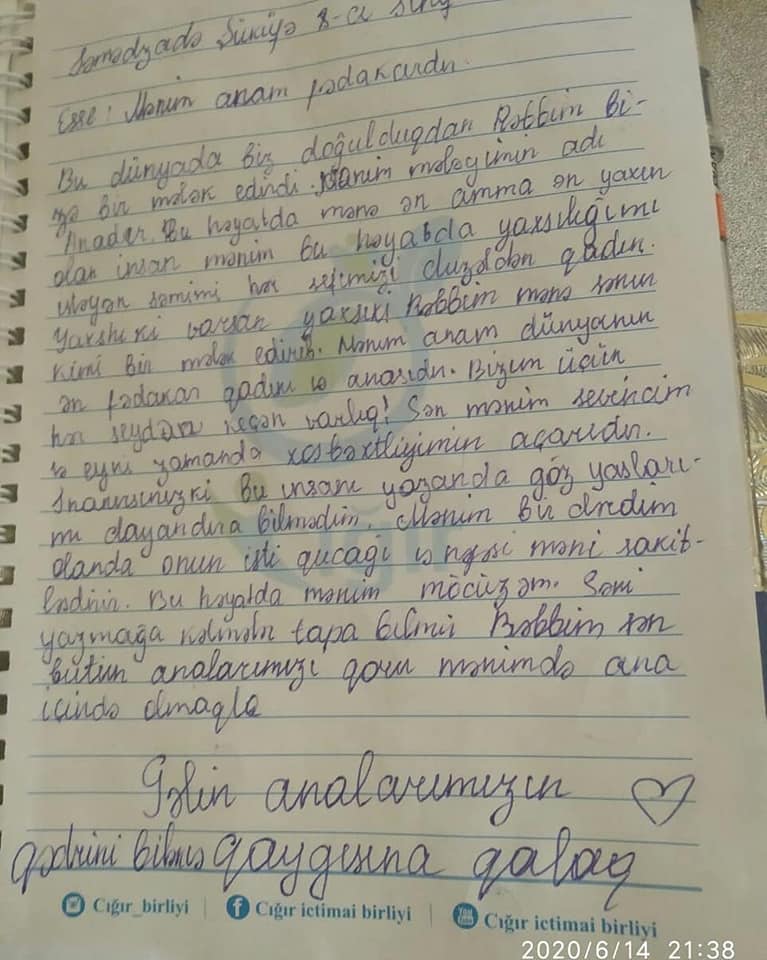 Səmədzadə Şükiyə 8-a sinf
Esse: Mənim anam fədakardır.
Bu dünyada biz doğulduqdan Rəbbim bi-
zə bir mələk edirdi. Mənim mələyimin adı
Anadır. Bu həyatda mənə ən amma ən yaxın
olan insan mənim bu həyatda yaxsılığımı
istəyən səmimi hər səhvimizi düzəldən qadın.
Yaxshı ki varsan yaxsıki Rəbbim mənə sənin
kimi bir mələk edirib. Mənim anam dünyanın
ən fədakar qadını və anasıdır. Bizim üçün
hər şeydən keçən varlıq! Sən mənim sevincim
və eyni zamanda xosbəxtliyimin açarıdır.
İnanırsınızki bu insanı yazanda göz yasları-
mı dayandıra bilmədim. Mənim bir dərdim
olanda onun isti qucağı və nəfəsi məni sakit-
ləşdirir. Bu həyatda mənim möcüzəm. Səni
yazmağa kəlmələr tapa bilmir Rəbbim sən
bütün analarımızı qoru mənimdə ana
içində olmaqla
Gəlin analarımızın ♡
qədrini bilməs qaygısına qalaq
Cığır_birliyi | Cığır ictimai birliyi | Cığır ictimai birliyi
2020/6/14 21:38